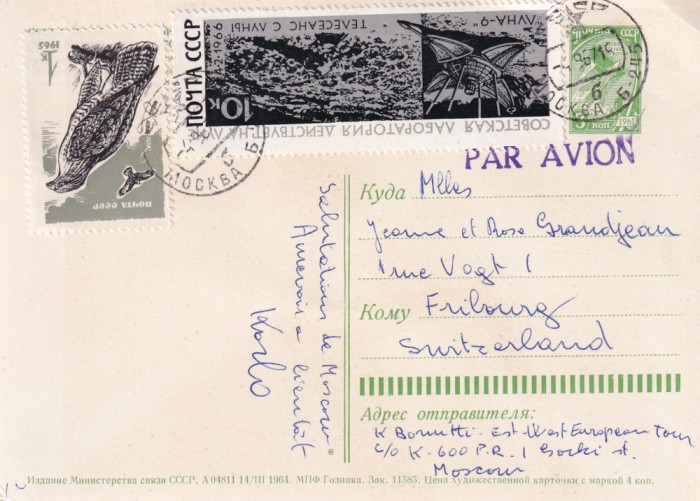 1965
1к
ПОЧТА СССР
ПОЧТА СССР
10к
3.2.1966
ТЕЛЕСЕАНС С ЛУНЫ
"ЛУНА-9"
СОВЕТСКАЯ ЛАБОРАТОРИЯ ДЕЙСТВУЕТ НА ЛУНЕ
МОСКВА
МОСКВА
6
ПОЧТА СССР
3 КОП
1961
PAR AVION
Куда Mlles
Jeanne et Rose Grandjean
1 rue Vogt 1
Кому Fribourg
Switzerland
Salutations de Moscow
Aurevoir a bientôt
Karlo
*
Адрес отправителя:
K Bornutti - Est-West European Tour
C/O K-600 P.R. 1 Gorki st.
Moscow
Издание Министерства связи СССР. А 04811 14/III 1964. МПФ Гознака. Зак. 11585. Цена художественной карточки с маркой 4 коп.